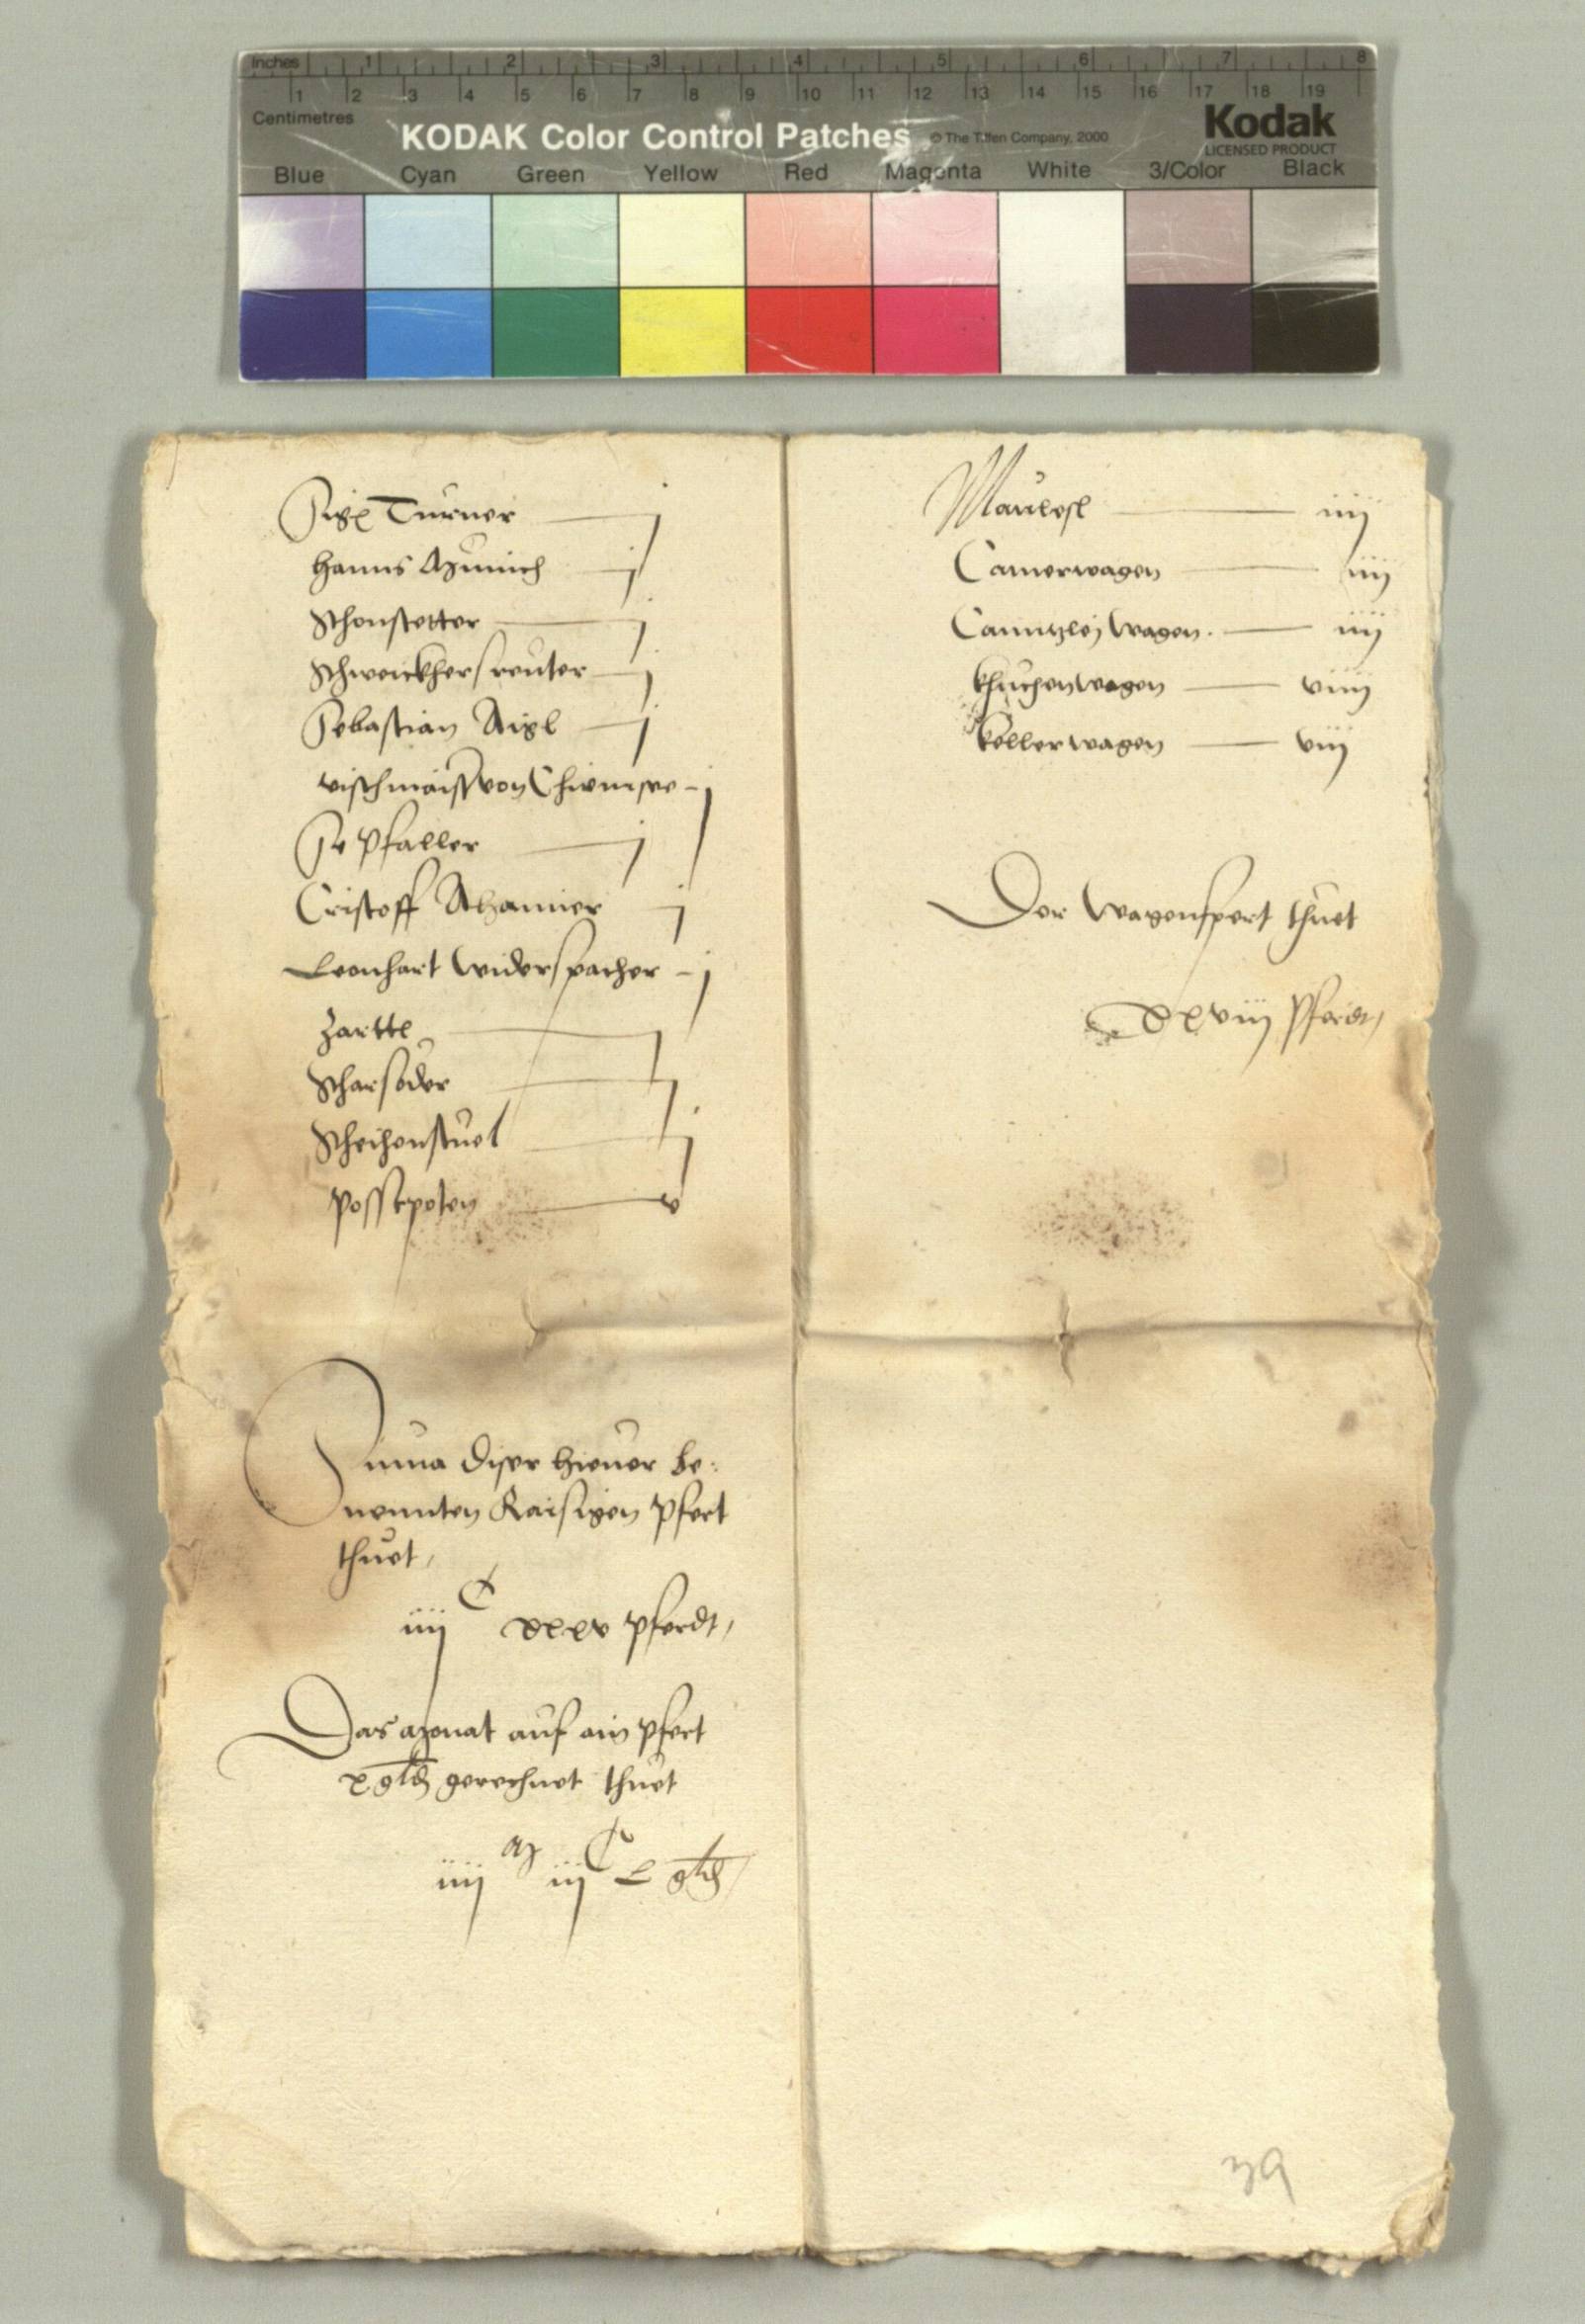 Inches 1 2 3 4 5 6 7 8
1 2 3 4 5 6 7 8 9 10 11 12 13 14 15 16 17 18 19
Centimetres
KODAK Color Control Patches © The Tiffen Company, 2000
Kodak
LICENSED PRODUCT
Blue Cyan Green Yellow Red Magenta White 3/Color Black
Sigl Turner j
Hanns Munich j
Schonstetter j
Schweickhersreuter j
Sebastian Aigl j
vischmaistr von Chiemsee j
Pfaller j
Cristoff j
Leonhart Widerspacher j
Zarttl j
Scharsöder j
Scheihenstuel j
Posstpoten v
Suma diser hieuor be:
nennten Raisigen Pfert
thuet,
iiij C xxxv pferdt,
Das Monat auf ain pfert
x gld gerechnet thuet
iiij M iij C L gld
Maulesl iiij
Camerwagen iiij
Canntzlej Wagen. iiij
Khuchenwagen viiij
Kellerwagen viij
Der Wagenpfert thuet
xxviij Pferdt,
39